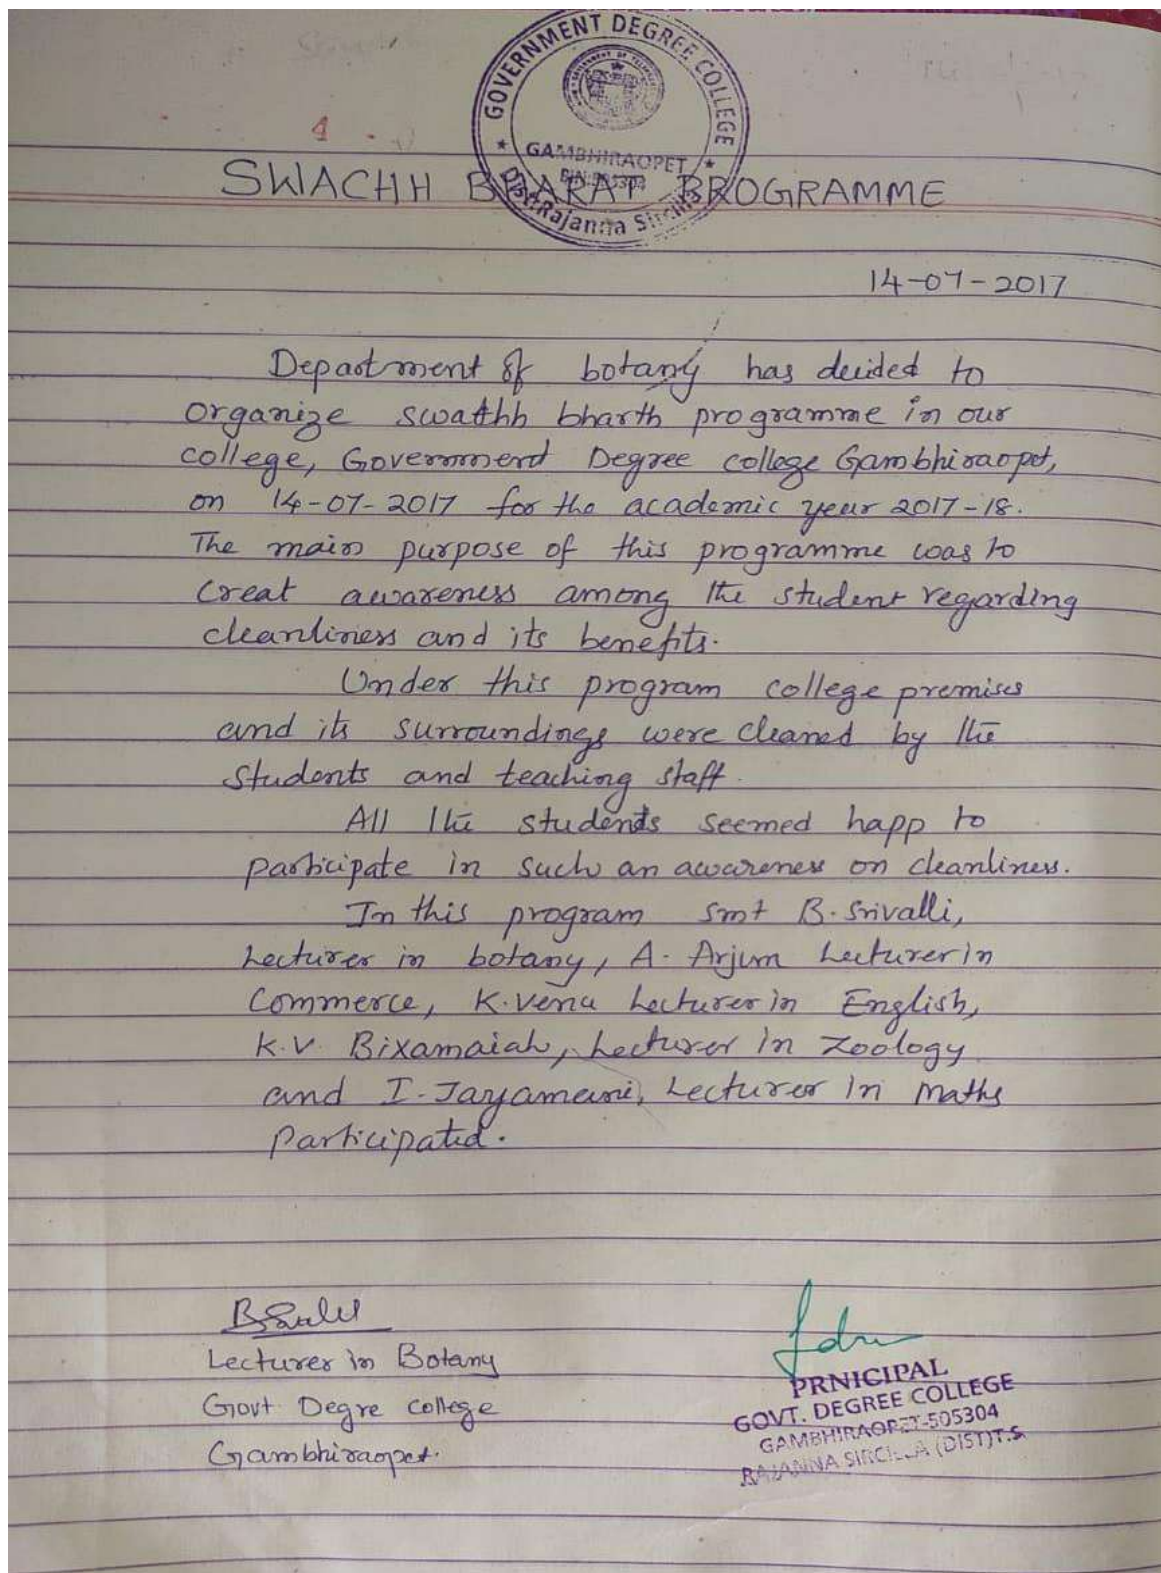 GOVERNMENT DEGREE COLLEGE
GAMBHIRAOPET
PIN:505304
Dist:Rajanna Sircilla
SWACHH BHARAT PROGRAMME
14-07-2017
Department of botany has decided to
organize swathh bharth programme in our
college, Government Degree college Gambhiraopet,
on 14-07-2017 for the academic year 2017-18.
The main purpose of this programme was to
Creat awareness among the student regarding
cleanliness and its benefits.
Under this program college premises
and its surroundings were cleaned by the
students and teaching staff.
All the students seemed happ to
participate in such an awareness on cleanliness.
In this program smt B. Srivalli,
Lecturer in botany, A. Arjun Lecturer in
Commerce, K. Venu Lecturer in English,
K.V. Bixamaiah, Lecturer in Zoology
and I. Jayamani, Lecturer in maths
participated.
Lecturer in Botany
Govt Degre college
Gambhiraopet.
PRNICIPAL
GOVT. DEGREE COLLEGE
GAMBHIRAOPET-505304
RAJANNA SIRCILLA (DIST)T.S.